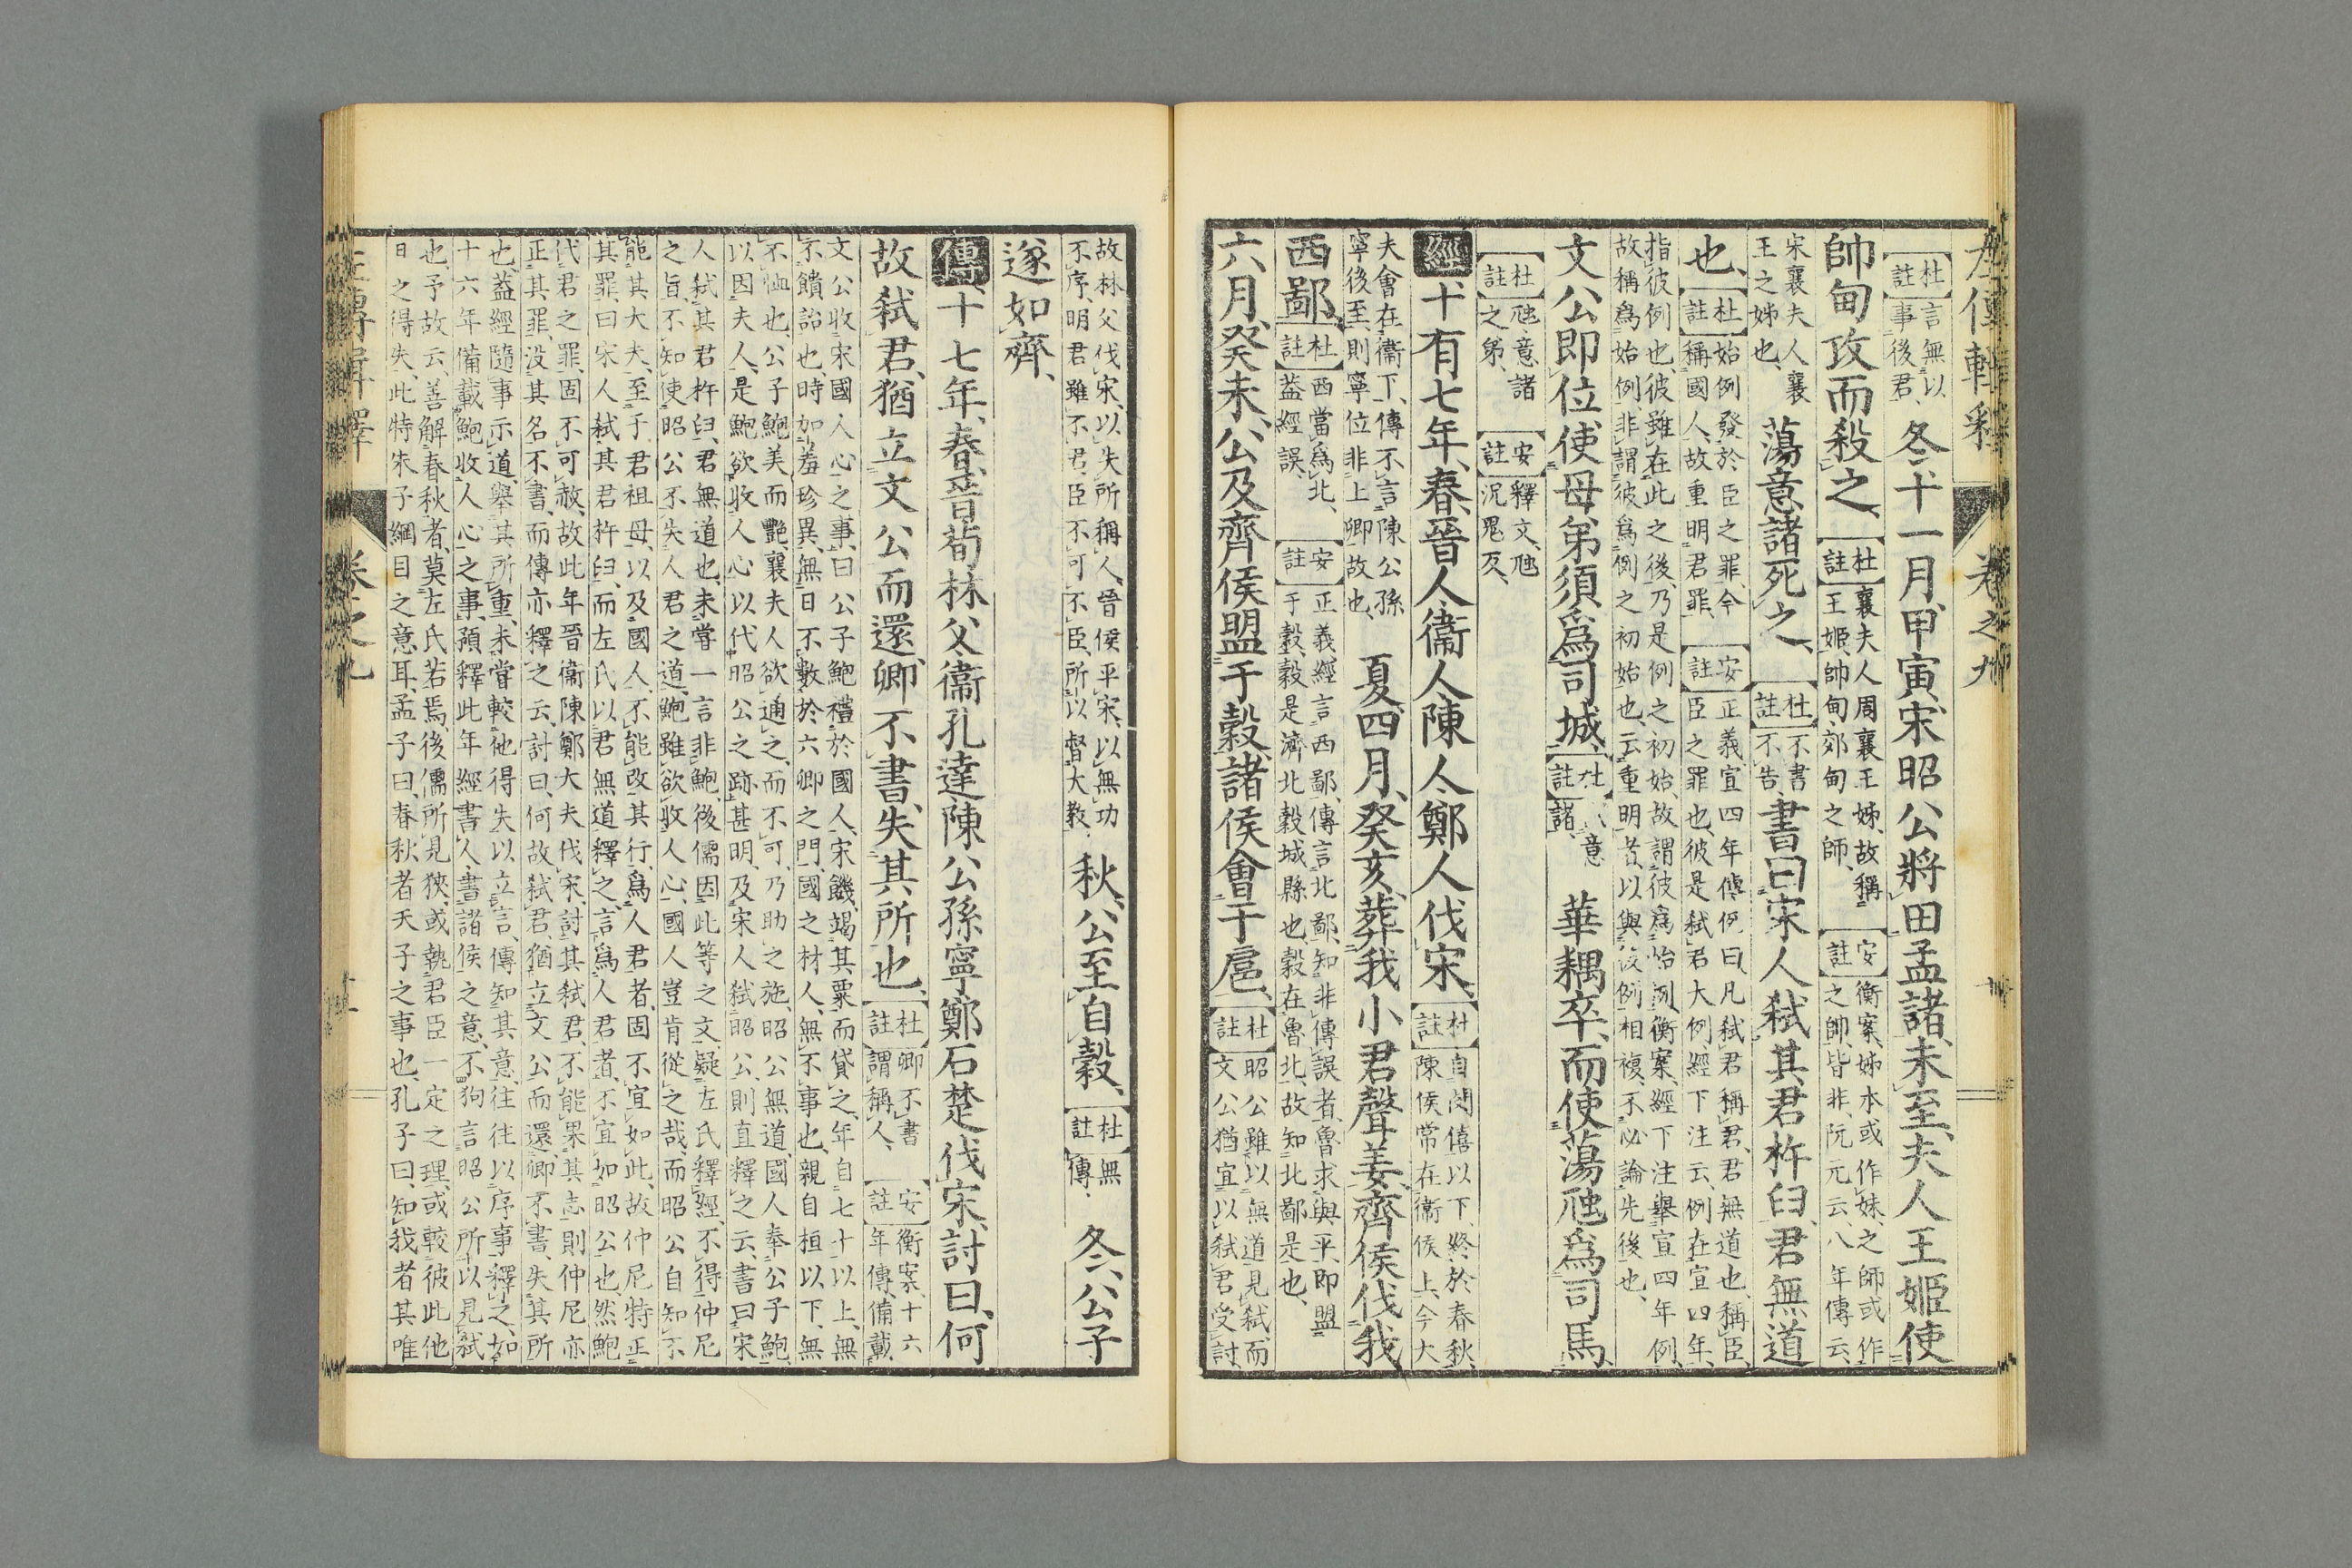 左傳輯釋　卷之九
【杜註】言無以事後君、冬、十一月、甲寅、宋昭公將田孟諸、未至、夫人王姬使
帥甸攻而殺之、【杜註】襄夫人、周襄王姊、故稱王姬、帥甸、郊甸之師、【安註】衡案、姊本或作妹、之師或作之帥、皆非、阮元云、八年傳云、
宋襄夫人、襄王之姊也、蕩意諸死之、【杜註】不書不告、書曰宋人弑其君杵臼、君無道
也、【杜註】始例發於臣之罪、今稱國人、故重明君罪、【安註】正義、宣四年傳例曰、凡弑君稱君、君無道也、稱臣、臣之罪也、彼是弑君大例、經下注云、例在宣四年、
指彼例也、彼雖在此之後、乃是例之初始、故謂彼爲始例、衡案、經下注擧宣四年例、故稱爲始例、非謂彼爲例之初始也、云重明者、以與彼例相複、不必論先後也、
文公即位、使母弟須爲司城、【杜註】意諸、華耦卒、而使蕩虺爲司馬、
【杜註】虺、意諸之弟、【安註】釋文、虺況鬼反、
經十有七年、春、晉人、衞人、陳人、鄭人、伐宋、【杜註】自閔僖以下、終於春秋、陳侯常在衞侯上、今大
夫會在衞下、傳不言陳公孫寧後至、則寧位非上卿故也、夏、四月、癸亥、葬我小君聲姜、齊侯伐我
西鄙、【杜註】西當爲北、蓋經誤、【安註】正義、經言西鄙、傳言北鄙、知非傳誤者、魯求與平、即盟于穀、穀是濟北穀城縣也、穀在魯北、故知北鄙是也、
六月、癸未、公及齊侯盟于穀、諸侯會于扈、【杜註】昭公雖以無道見弑、而文公猶宜以弑君受討、
故林父伐宋、以失所稱人、晉侯平宋、以無功不序、明君雖不君、臣不可不臣、所以督大教、秋、公至自穀、【杜註】無傳、冬、公子
遂如齊、
傳十七年、春、晉荀林父、衞孔達、陳公孫寧、鄭石楚伐宋、討曰、何
故弑君、猶立文公而還、卿不書、失其所也、【杜註】卿不書、謂稱人、【安註】衡案、十六年傳、備載
文公收宋國人心之事、曰、公子鮑禮於國人、宋饑、竭其粟而貸之、年自七十以上、無不饋詒也、時加羞珍異、無日不數於六卿之門、國之材人、無不事也、親自桓以下、無
不恤也、公子鮑美而艷、襄夫人欲通之、而不可、乃助之施、昭公無道、國人奉公子鮑以因夫人、是鮑欲收人心以代昭公之跡甚明、及宋人弑昭公、則直釋之云、書曰宋
人弑其君杵臼、君無道也、未嘗一言非鮑、後儒因此等之文、疑左氏釋經、不得仲尼之旨、不知使昭公不失人君之道、鮑雖欲收人心、國人豈肯從之哉、而昭公自知不
能其大夫、至于君祖母、以及國人、不能改其行、爲人君者、固不宜如此、故仲尼特正其罪、曰宋人弑其君杵臼、而左氏以君無道釋之、言爲人君者、不宜如昭公也、然鮑
代君之罪、固不可赦、故此年晉衞陳鄭大夫伐宋、討其弑君、不能果其志、則仲尼亦正其罪、沒其名不書、而傳亦釋之云、討曰、何故弑君、猶立文公而還、卿不書、失其所
也、蓋經隨事示道、擧其所重、未嘗較他得失以立言、傳知其意、往往以序事釋之、如十六年備載鮑收人心之事、預釋此年經書人、書諸侯之意、不狥言昭公所以見弑
也、予故云、善解春秋者、莫左氏若焉、後儒所見狹、或執君臣一定之理、或較彼此他日之得失、此特朱子綱目之意耳、孟子曰、春秋者天子之事也、孔子曰、知我者其唯
左傳輯釋　卷之九　十一